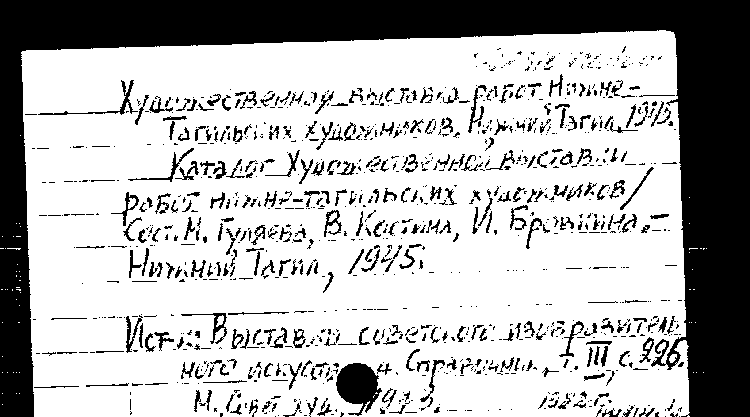 Художественная выставка работ Нижне-
Тагильских художников. Нижний Тагил. 1945.
Каталог Художественной выставки
работ нижне-тагильских художников/
Сост. М. Гуляева, В. Костина, И. Бровкина.-
Нижний Тагил, 1945.
Ист-к: Выставки советского изобразитель
ного искусства. Справочник, т. III, с. 226.
М., Совет. худ., 1973.